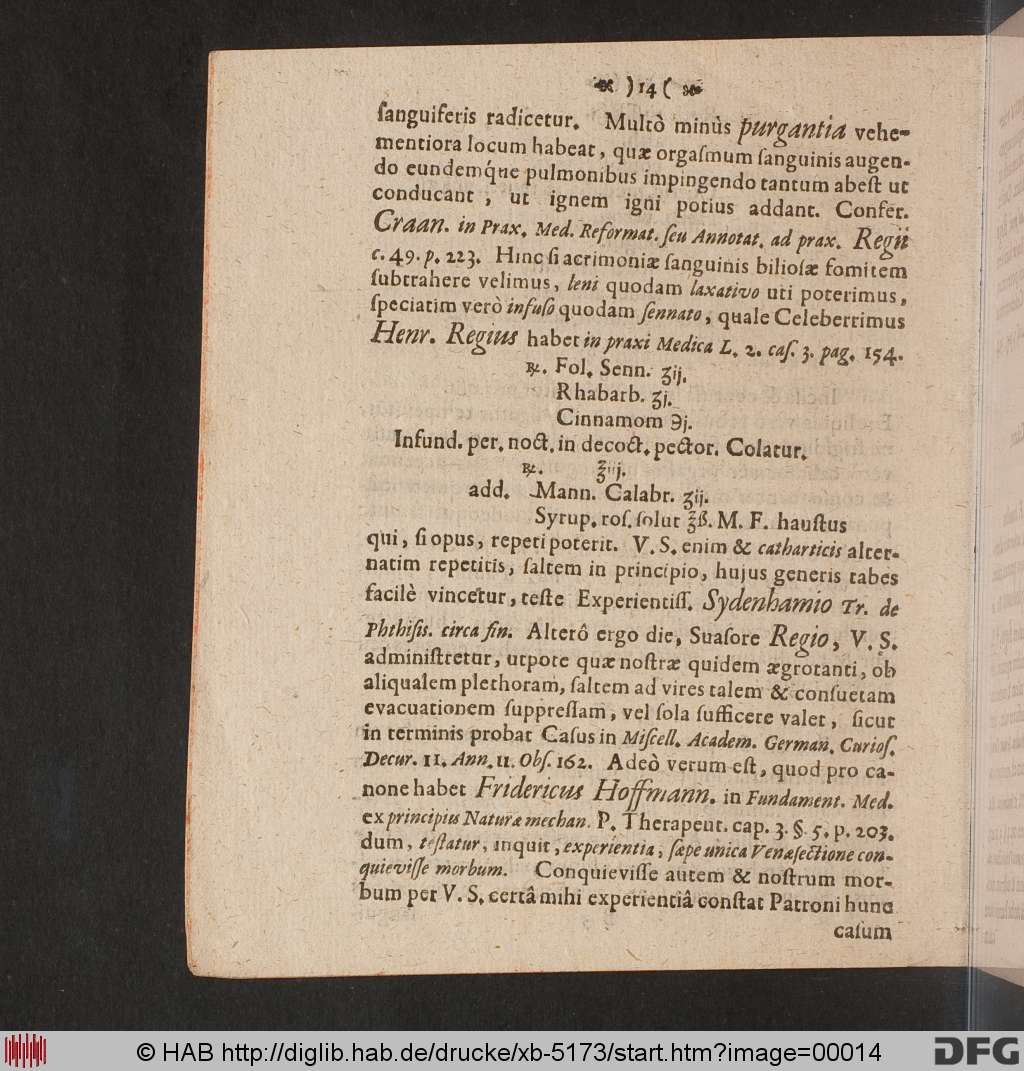 )14(
ſanguiferis radicetur. Multò minùs purgantia vehe-
mentiora locum habeat, quæ orgaſmum ſanguinis augen-
do eundemq́ue pulmonibus impingendo tantum abeſt ut
conducant, ut ignem igni potius addant. Confer.
Craan. in Prax. Med. Reformat. ſeu Annotat. ad prax. Regii
c. 49. p. 223. Hinc ſi acrimoniæ ſanguinis bilioſæ fomitem
ſubtrahere velimus, leni quodam laxativo uti poterimus,
ſpeciatim verò infuſo quodam ſennato, quale Celeberrimus
Henr. Regius habet in praxi Medica L. 2. caſ. 3. pag. 154.
℞. Fol. Senn. ʒij.
Rhabarb. ʒj.
Cinnamom ℈j.
Infund. per. noct. in decoct. pector. Colatur.
℞. ℥iij.
add. Mann. Calabr. ʒij.
Syrup. roſ. ſolut ℥ß. M. F. hauſtus
qui, ſi opus, repeti poterit. V. S. enim & catharticis alter-
natim repetitis, ſaltem in principio, hujus generis tabes
facilè vincetur, teſte Experientiſſ. Sydenhamio Tr. de
Phthiſis. circa fin. Alterô ergo die, Suaſore Regio, V. S.
adminiſtretur, utpote quæ noſtræ quidem ægrotanti, ob
aliqualem plethoram, ſaltem ad vires talem & conſuetam
evacuationem ſuppreſſam, vel ſola ſufficere valet, ſicut
in terminis probat Caſus in Miſcell. Academ. German. Curioſ.
Decur. II. Ann. II. Obſ. 162. Adeò verum eſt, quod pro ca-
none habet Fridericus Hoffmann. in Fundament. Med.
ex principiis Naturæ mechan. P. Therapeut. cap. 3. §. 5. p. 203.
dum, teſtatur, inquit, experientia, ſæpe unica Venæſectione con-
quieviſſe morbum. Conquieviſſe autem & noſtrum mor-
bum per V. S. certâ mihi experientiâ conſtat Patroni hunc
caſum
© HAB http://diglib.hab.de/drucke/xb-5173/start.htm?image=00014
DFG